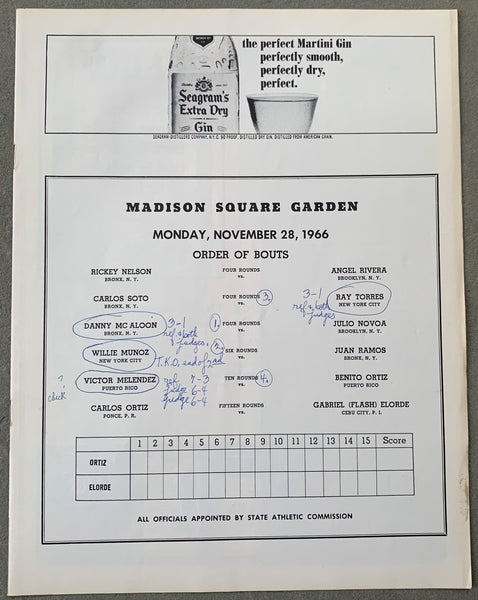 the perfect Martini Gin
perfectly smooth,
perfectly dry,
perfect.
Seagram's
Extra Dry
Gin
SEAGRAM-DISTILLERS COMPANY, N.Y.C. 90 PROOF. DISTILLED DRY GIN. DISTILLED FROM AMERICAN GRAIN.
MADISON SQUARE GARDEN
MONDAY, NOVEMBER 28, 1966
ORDER OF BOUTS
RICKEY NELSON FOUR ROUNDS ANGEL RIVERA
BRONX, N. Y. vs. BROOKLYN, N. Y.
CARLOS SOTO FOUR ROUNDS 3. 3-1 RAY TORRES
BRONX, N. Y. vs. ref & both NEW YORK CITY
judges
DANNY MC ALOON 3-1 1. FOUR ROUNDS JULIO NOVOA
BRONX, N. Y. ref & both vs. BROOKLYN, N. Y.
judges.
WILLIE MUNOZ 2. SIX ROUNDS JUAN RAMOS
NEW YORK CITY T.K.O. end of 2nd vs. BRONX, N. Y.
? VICTOR MELENDEZ ref 7-3 TEN ROUNDS 4. BENITO ORTIZ
PUERTO RICO judge 6-4 vs. PUERTO RICO
check judge 6-4
CARLOS ORTIZ FIFTEEN ROUNDS GABRIEL (FLASH) ELORDE
PONCE, P. R. vs. CEBU CITY, P. I.
1 2 3 4 5 6 7 8 9 10 11 12 13 14 15 Score
ORTIZ
ELORDE
ALL OFFICIALS APPOINTED BY STATE ATHLETIC COMMISSION